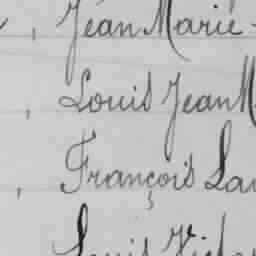 , Jean Marie
, Louis Jean M
, François Lau
Louis Victor